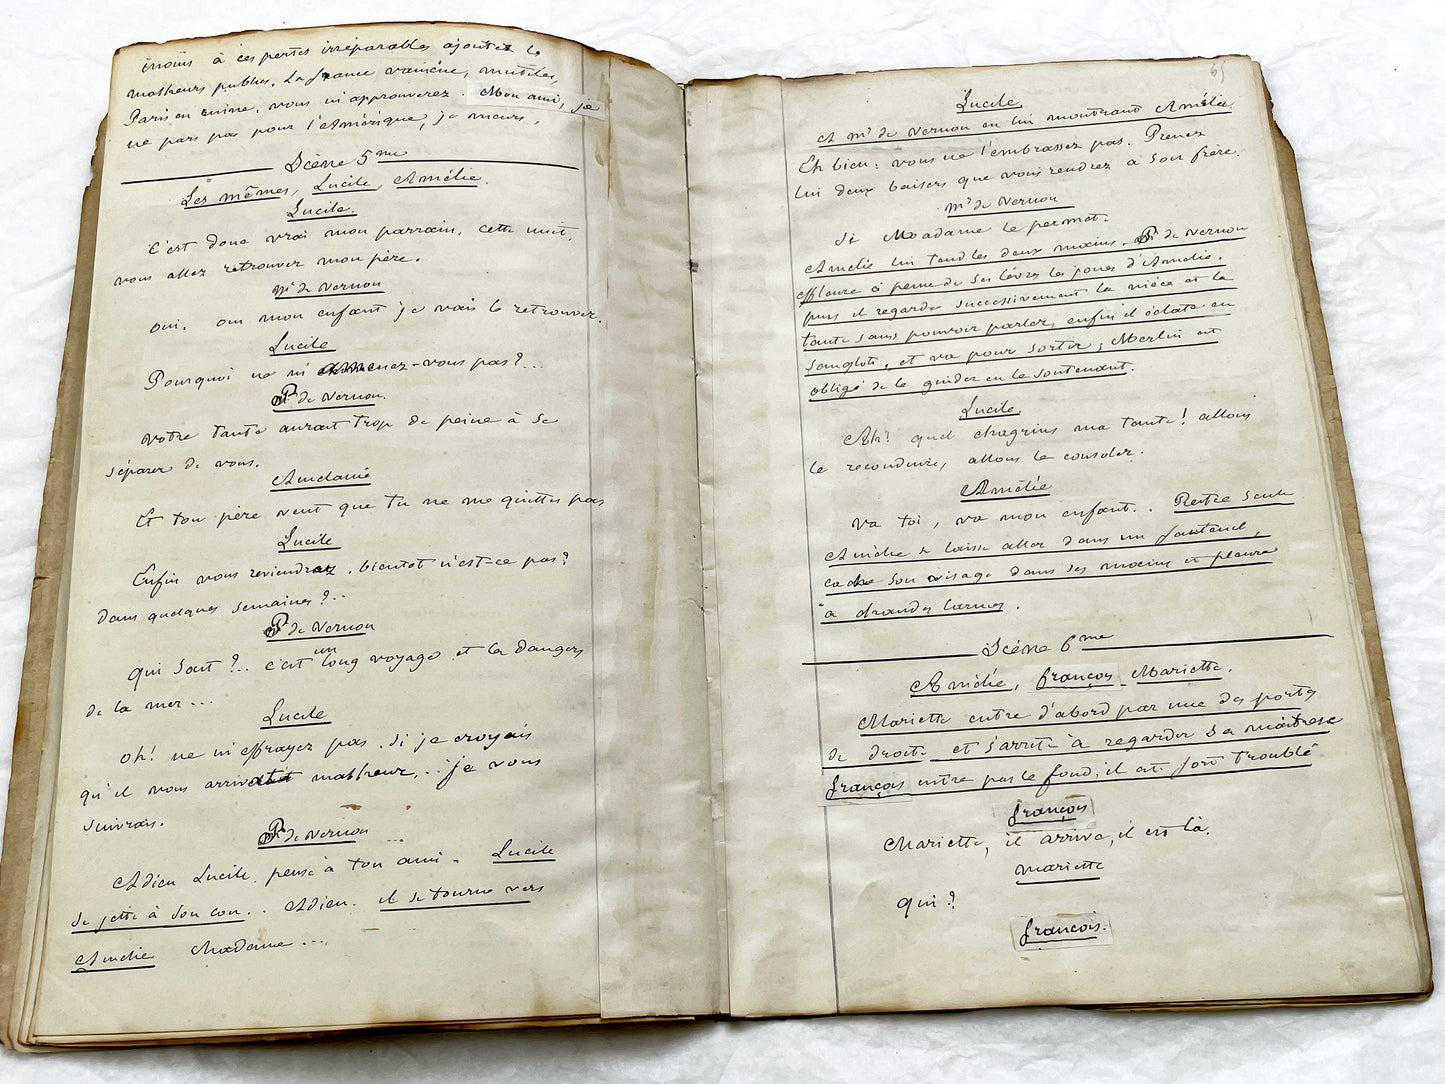 moins à ces pertes irréparables ajoutez le
malheurs publics. La france vaincue, mutilée,
Paris en ruine. vous m'approuverez. Mon ami, je
ne pars pas pour l'Amérique, je meurs.
Scène 5me
Les mêmes, Lucile, Amélie.
Lucile.
C'est donc vrai mon parrain, cette nuit,
vous allez retrouver mon père.
Mr de Vernon
oui. oui mon enfant je vais le retrouver.
Lucile
Pourquoi ne m'emmenez-vous pas?...
P. de Vernon.
Votre tante aurait trop de peine à se
séparer de vous.
Amélie
Et ton père veut que tu ne me quittes pas
Lucile
Enfin vous reviendrez, bientot n'est-ce pas?
dans quelques semaines?..
P de Vernon
Qui sait?.. c'est un long voyage et les dangers
de la mer...
Lucile
Oh! ne m'effrayez pas. Si je croyais
qu'il vous arrivat malheur,... je vous
suivrais.
P. de Vernon
Adieu Lucile. pense à ton ami. Lucile
se jette à son cou.. Adieu. il se tourne vers
Amélie Madame...
65
Lucile
A Mr de Vernon en lui montrant Amélie.
Eh bien: vous ne l'embrassez pas. Prenez
lui deux baisers que vous rendrez à son frère.
Mr de Vernon
Si Madame le permet.
Amélie lui tend les deux mains. P. de Vernon
effleure à peine de ses lèvres les joues d'Amélie.
puis il regarde successivement la nièce et la
tante sans pouvoir parler, enfin il éclate en
sanglots, et va pour sortir; Merlin est
obligé de le guider en le soutenant.
Lucile
Ah! quel chagrins ma tante! allons
le reconduire, allons le consoler.
Amélie
Va toi, va mon enfant.. Restée seule
Amélie se laisse aller dans un fauteuil,
cache son visage dans ses mains et pleure
à chaudes larmes.
Scène 6me
Amélie, françois Mariette.
Mariette entre d'abord par une des portes
de droite et s'arrête à regarder sa maitresse
françois entre par le fond, il est fort troublé
françois
Mariette, il arrive, il est là.
Mariette
Qui?
françois.